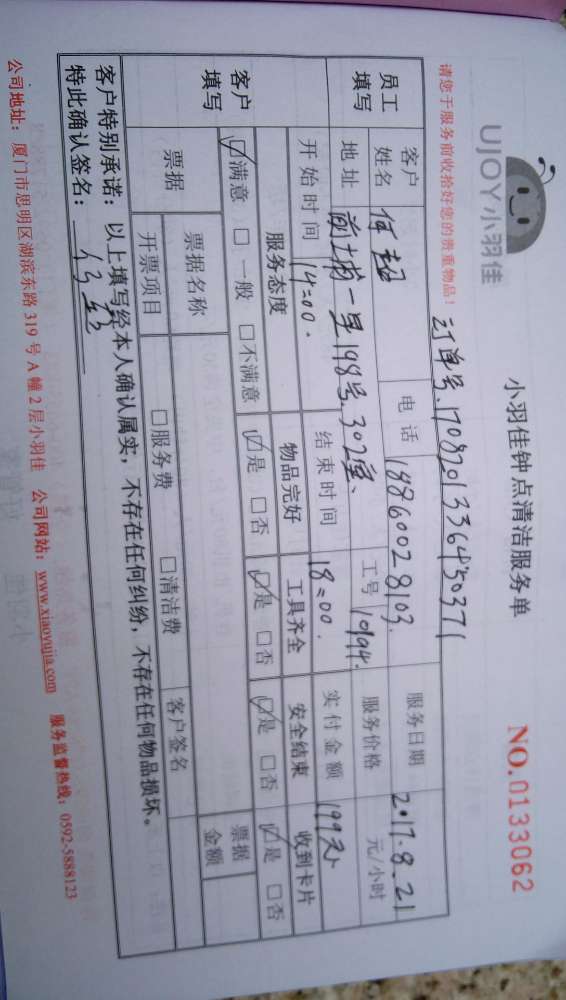 UJOY小羽佳
小羽佳钟点清洁服务单
NO.0133062
请您于服务前收拾好您的贵重物品！
订单号:1708201336450371
员工填写
客户姓名 何超 电话 18860028103. 服务日期 2017.8.21
地址 前埔一里198号.302室、 工号 10194. 服务价格 元/小时
开始时间 14=00. 结束时间 18=00. 实付金额 199元
客户填写
服务态度 物品完好 工具齐全 安全结束 收到卡片
☑满意 □一般 □不满意 ☑是 □否 ☑是 □否 ☑是 □否 ☑是 □否
票据 票据名称 票据金额
开票项目 □服务费 □清洁费 客户签名
客户特别承诺：以上填写经本人确认属实，不存在任何纠纷，不存在任何物品损坏。
特此确认签名：
公司地址：厦门市思明区湖滨东路 319 号 A 幢 2 层小羽佳 公司网站：www.xiaoyujia.com 服务监督热线：0592-5888123